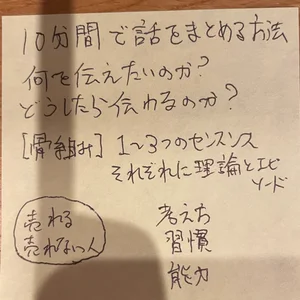 10分間で話をまとめる方法
何を伝えたいのか？
どうしたら伝わるのか？
[骨組み] 1〜3つのセンスンス
それぞれに理論とエピ
ソード
売れる
売れない人
考え方
習慣
能力